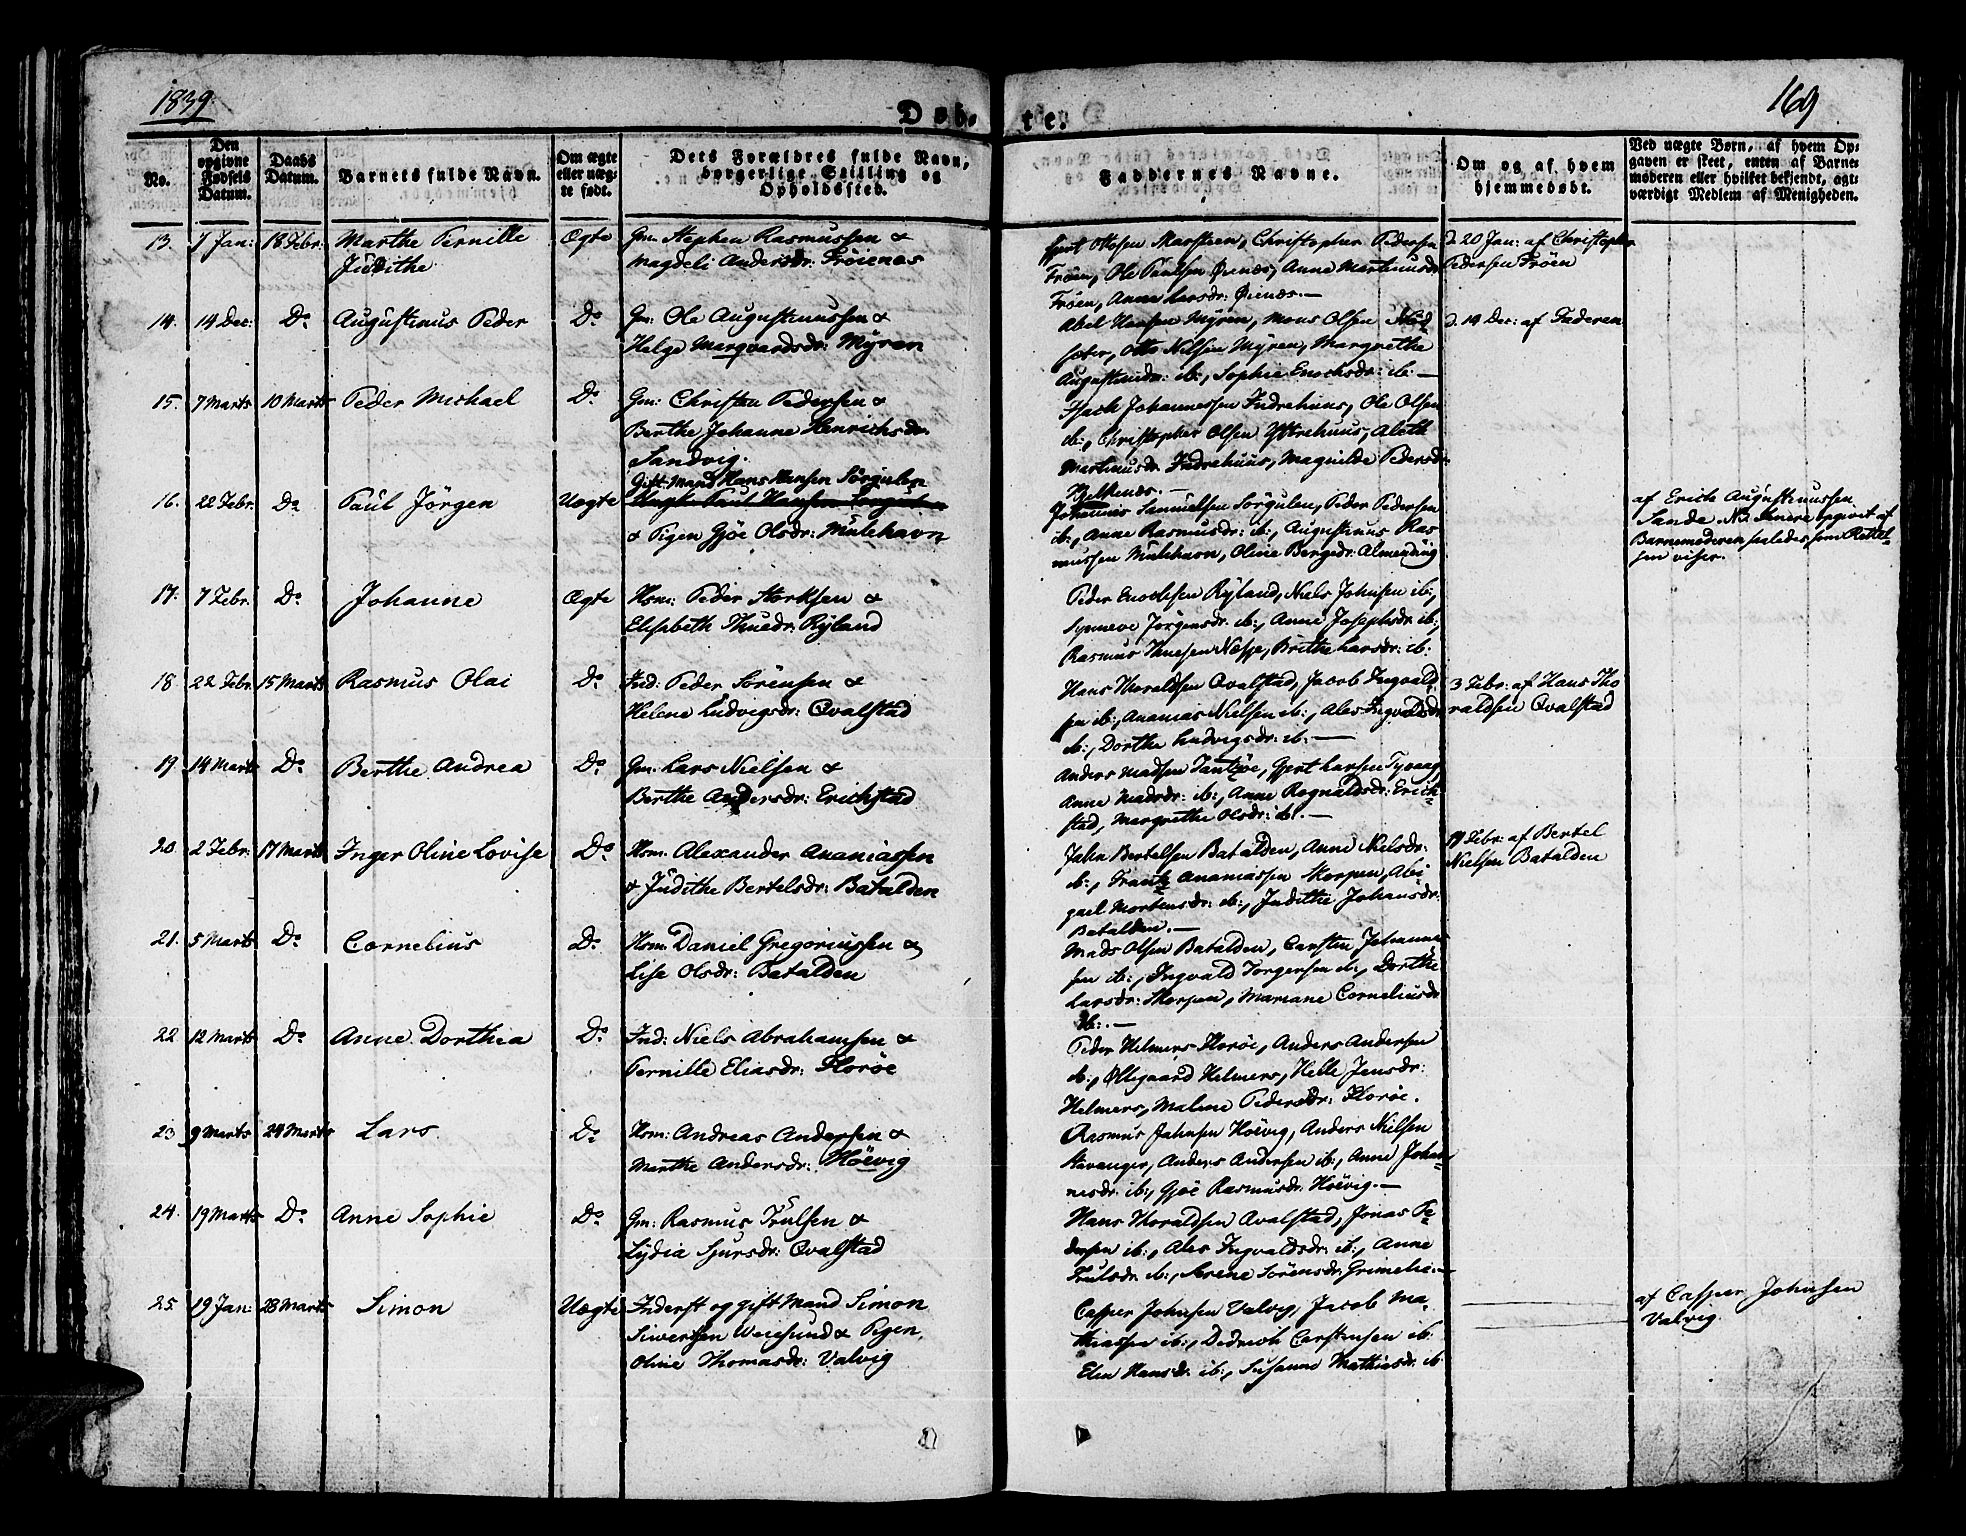 1839
Døb-te.
169
No.
Den opgivne Fødsels Datum.
Daabs Datum.
Barnets fulde Navn.
Om ægte eller uægte født.
Dets Forældres fulde Navn, borgerlige Stilling og Opholdssted.
Faddernes Navne.
Om og af hvem hjemmedøbt.
Ved uægte Børn, af hvem Opgaven er skeet, enten af Barnemoderen eller hvilket bekjendt, agtværdigt Medlem af Menigheden.
13. 7 Jan: 18 Febr: Marthe Pernille Ægte Gm: Stephen Rasmussen &
Judithe Magdeli Andersdr: Frøienæs
Gjert Ottosen Marsteen, Christopher Pedersen
Frøen, Ole Paulsen Øienæs, Anne Martinusdr
Frøen, Anne Larsdr: Øienæs.—
d. 20 Jan: af Christopher
Pedersen Frøen
14. 14 Dec: Do Augustinus Peder Do Gm: Ole Augustinussen &
Helge Marqvardsdr: Myren
Abel Hansen Myren, Mons Olsen
sæter, Otto Nilsen Myren, Margrethe
Augustinidr: ib:, Sophie Enochsdr: ib: —
d. 14 Dec: af Faderen
15. 7 Marts 10 Marts Peder Michael Do Gm: Christen Pedersen &
Berthe Johanne Henrichsdr:
Sandvig.
Isack Johannessen Indrehuus, Ole Olsen
ib:, Christopher Olsen Yttrehuus, Aleth
Martinusdr: Indrehuus, Magnilde Pedersdr:
16. 22 Febr: Do Paul Jörgen Uægte Gift Mand Hans Hansen Sørgulen
& Pigen Gjøe Olsdr: Mulehavn
Johannis Samuelsen Sørgulen, Peder Pedersen
ib:, Anne Rasmusdr: ib:, Augustinus Ras
mussen Mulehavn, Oline Bergedr: Almending
af Erich Augustinussen
Sande. NB. senere opgivet af
Barnemoderen saaledes som Rettel-
sen viser.
17. 7 Febr: Do Johanne Ægte Hsm: Peder Storksen &
Elisabeth Thuedr: Ryland
Peder Enochsen Ryland, Niels Johnsen ib:,
Synneve Jørgensdr: ib:, Anne Josephsdr: ib:,
Rasmus Thuesen Næsje, Brithe Larsdr: ib:
18 22 Febr. 15 Marts Rasmus Olai Do Ind: Peder Sörensen &
Helene Ludvigsdr: Qvalstad
Hans Thoraldsen Qvalstad, Jacob Ingvald
sen ib:, Ananias Nielsen ib:, Ales Ingvaldsdr
ib:, Dorthe Ludvigsdr: ib: —
3 Febr: af Hans Tho
raldsen Qvalstad
19 14 Marts Do Berthe Andrea Do Gm: Lars Nielsen &
Berthe Andersdr: Erichstad
Anders Madsen Tantzøe, Gjert Larsen Tyvaag
Anne Madsdr: ib:, Anne Rognaldsdr: Erich-
stad, Margrethe Olsdr: ib:. —
20. 2 Febr: 17 Marts Inger Oline Lovise Do Hsm: Alexander Ananiassen
& Judithe Bertelsdr: Batalden
Jahn Bertelsen Batalden, Anne Nielsdr:
ib:, Frantz Ananiassen Skorpen, Abi
gael Mortensdr: ib:, Judithe Johansdr:
Batalden. —
19 Febr: af Bertel
Nielsen Batalden
21. 5 Marts Do Cornelius Do Hsm: Daniel Gregoriussen &
Lise Olsdr: Batalden
Mads Olsen Batalden, Carsten Johanne
sen ib:, Ingvald Torgersen ib:, Dorthe
Larsdr: Skorpen, Mariane Corneliusdr
ib:. —
22 12 Marts Do Anne Dorthea Do Ind: Niels Abrahamsen &
Pernille Eliasdr: Florøe
Peder Helmers Florøe, Anders Andersen
ib:, Øllegaard Helmers, Helle Jensdr:
Helmers, Malene Pedersdr: Florøe.
23 9 Marts 24 Marts Lars Do Hsm: Andreas Andersen &
Marthe Andersdr: Höevig
Rasmus Jahnsen Höevig, Anders Nielsen
Stavanger, Anders Andersen ib:, Anne Johan-
nesdr: ib:, Gjøe Rasmusdr: Höevig. —
24. 19 Marts Do Anne Sophie Do Gm: Rasmus Trulsen &
Lydia Sjursdr: Qvalstad
Hans Thoraldsen Qvalstad, Jonas Pe-
dersen ib:, Ales Ingvaldsdr: ib:, Anne
Trulsdr: ib:, Serene Sörensdr: Grimelie. —
25. 19 Jan: 28 Marts Simon Uægte Inderst og gift Mand Simon
Siwertsen Weiesund & Pigen
Oline Thomasdr: Valvig
Casper Johnsen Valvig, Jacob Ma-
thiassen ib:, Dedrich Carstensen ib:
Elen Hansdr: ib:, Susanne Mathiasdr: ib:
af Casper Johnsen
Valvig.